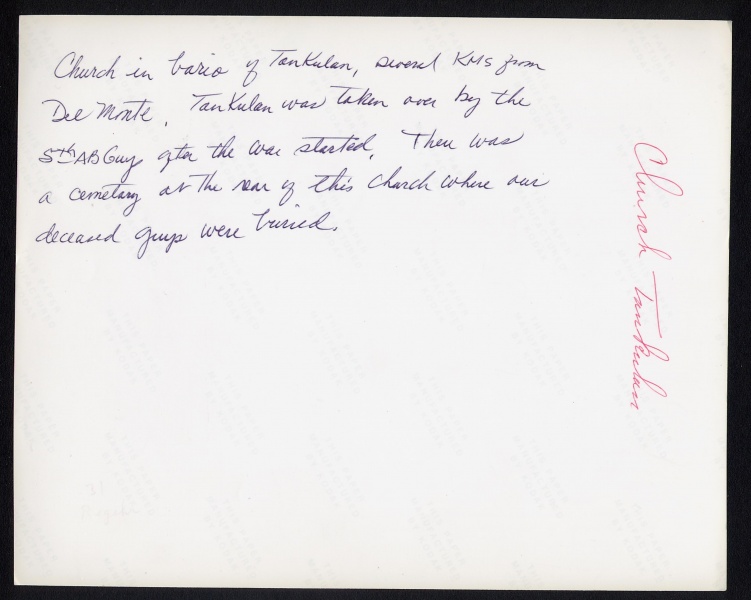 Church in bario of Tankulan, several KMs from
Del Monte. Tankulan was taken over by the
5th AB Guys after the war started. There was
a cemetary at the rear of this church where our
deceased guys were buried.
Church Tankulan